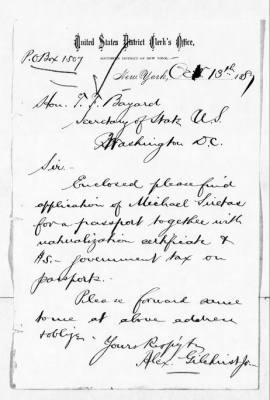 United States District Clerk's Office,
SOUTHERN DISTRICT OF NEW YORK,
P.O Box 1507
New York, Oct 13th 1887
Hon. T. F. Bayard
Secretary of State U.S.
Washington D.C.
Sir -
Enclosed please find
application of Michael
for a passport together with
naturalization certificate &
$5 - government tax on
passports.
Please forward same
to me at above address
& oblige
Yours Respfy
Alex. Gilchrist Jr.